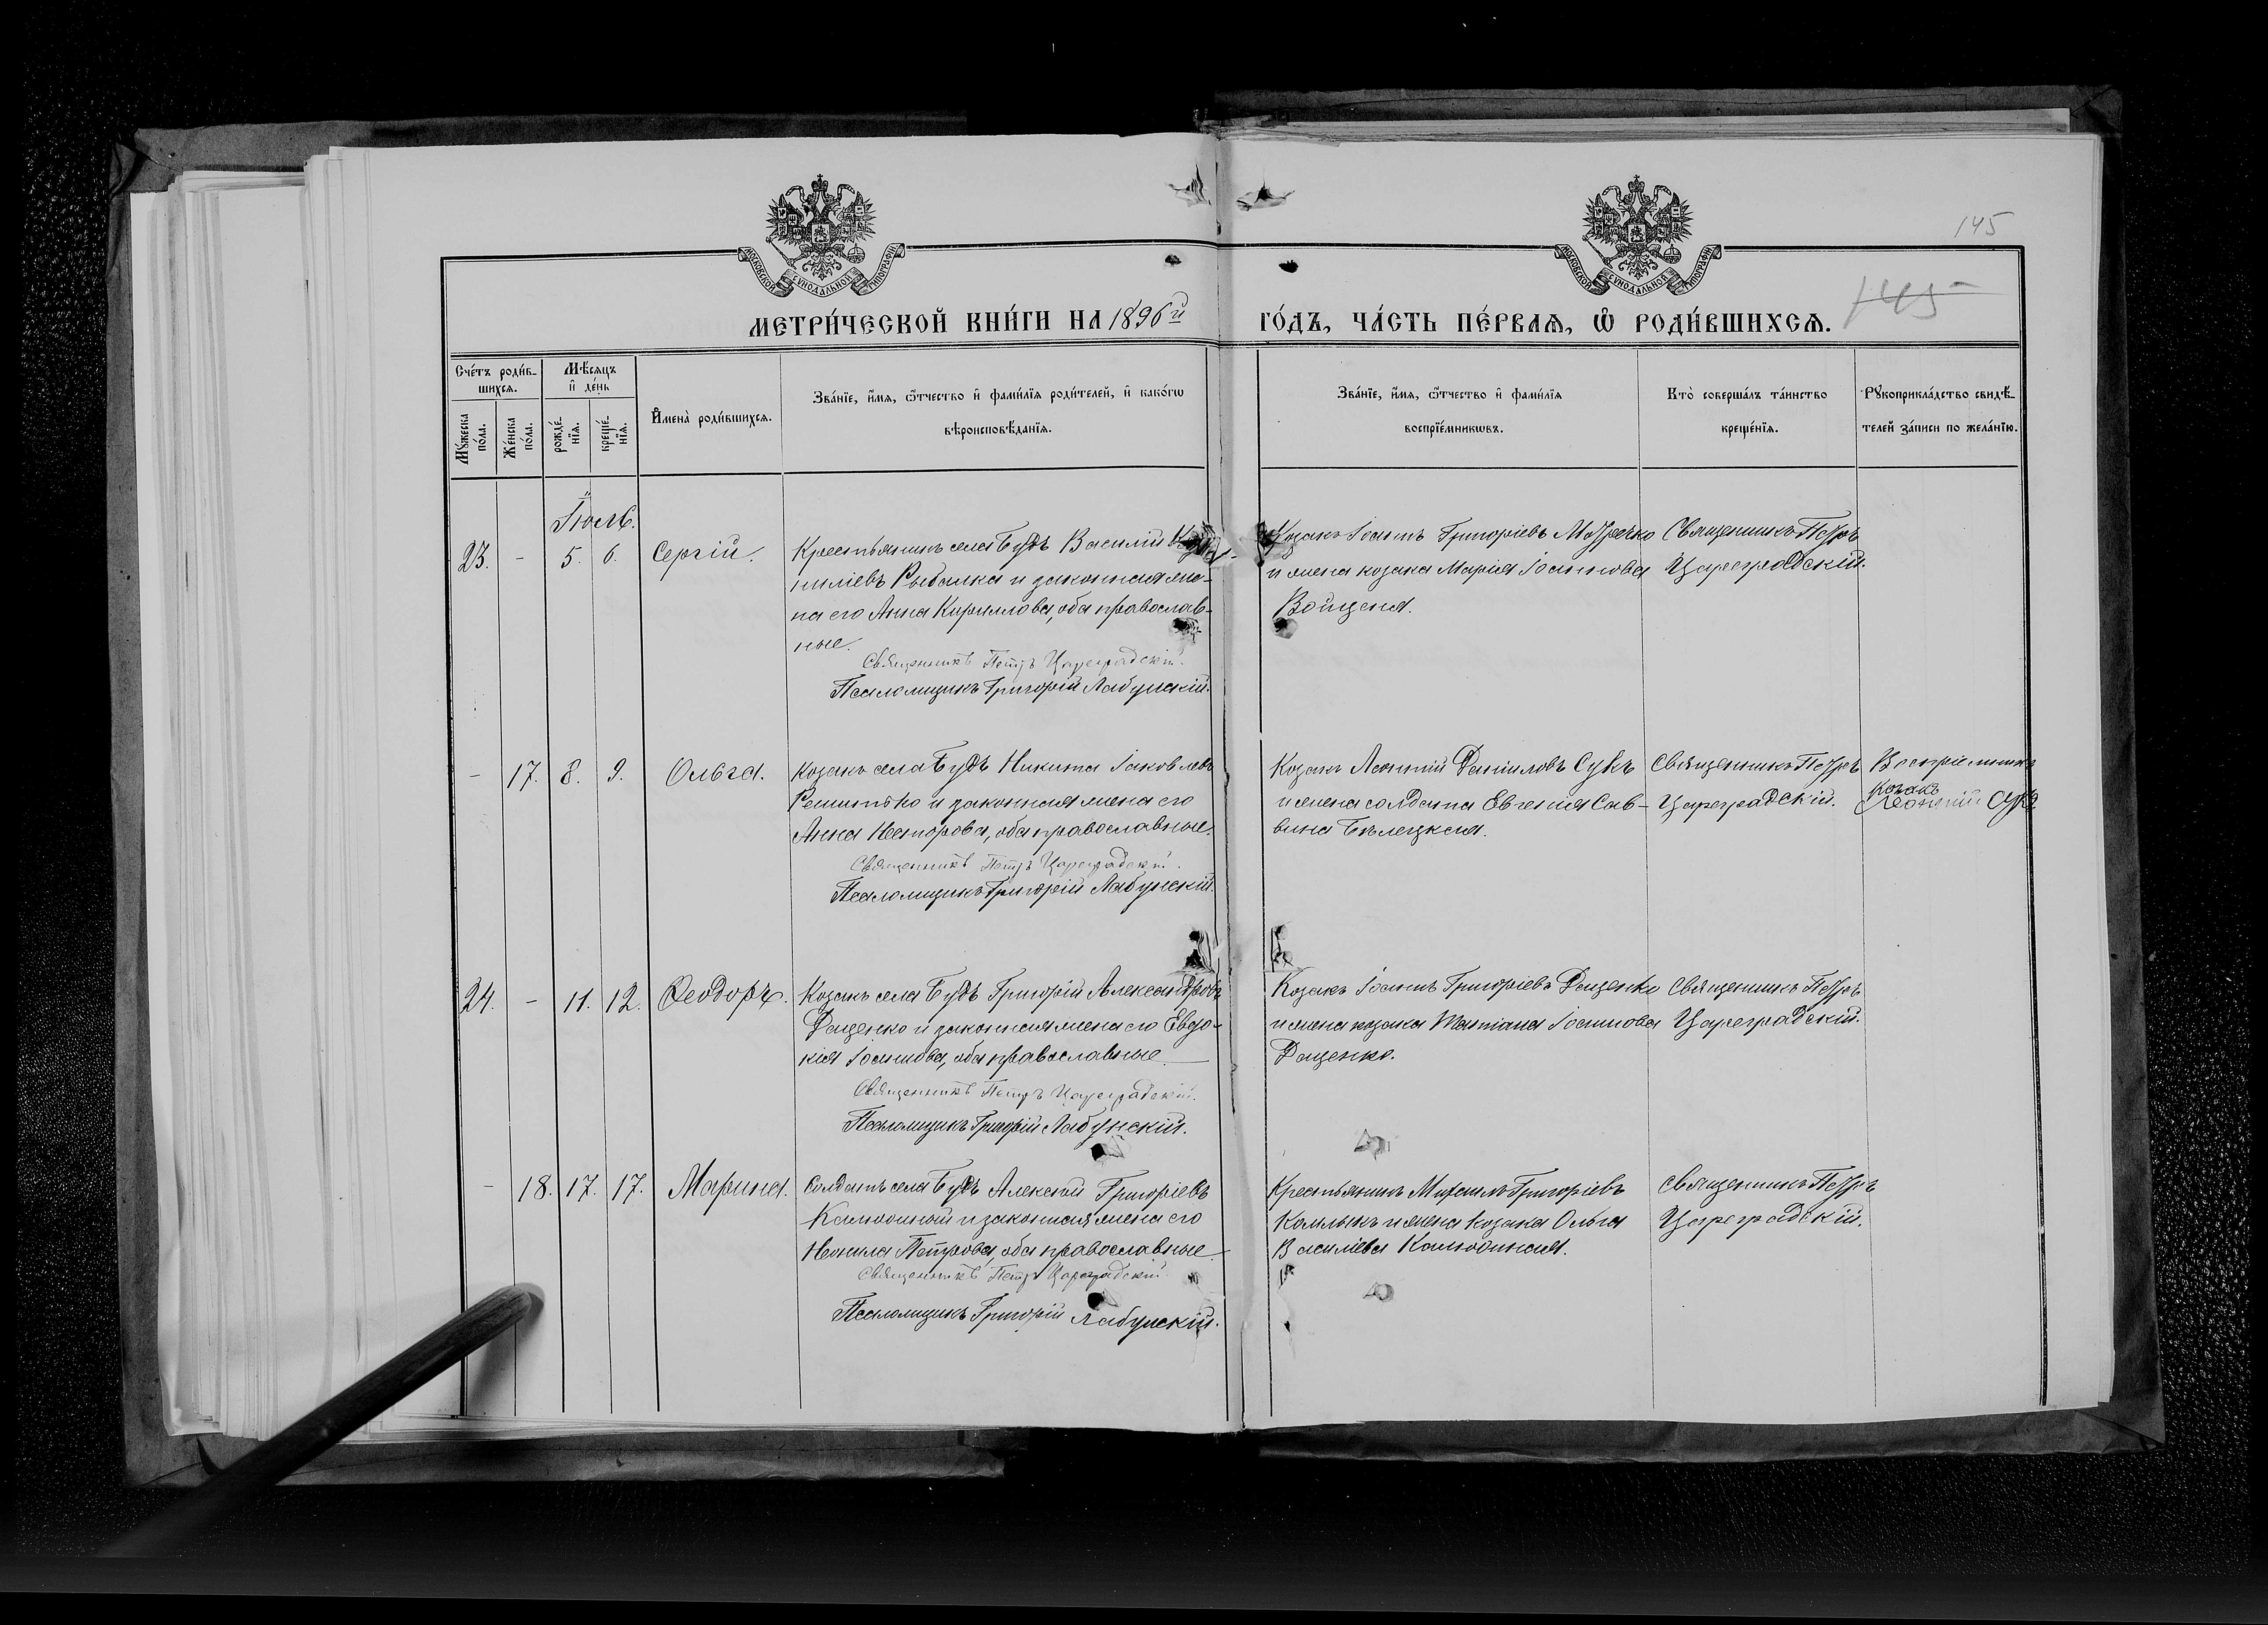 МОСКОВСКОЙ СѴНОДАЛЬНОЙ ТИПОГРАФІИ
МОСКОВСКОЙ СѴНОДАЛЬНОЙ ТИПОГРАФІИ
145
145
МЕТРИ́ЧЕСКОЙ КНИ́ГИ НА 1896й ГО́ДЪ, ЧА́СТЬ ПЕ́РВАѦ, Ѽ РОДИ́ВШИХСѦ.
Сче́тъ роди́в-
шихсѧ.
Мѣ́сѧцъ
и҆ де́нь
Мꙋ́жеска
по́ла.
Же́нска
по́ла.
рожде́-
нїѧ.
креще́-
нїѧ.
И҆мена̀ роди́вшихсѧ.
Зва́нїе, и҆́мѧ, ѻ҆́тчество и҆ фами́лїѧ роди́телей, и҆ како́гѡ
вѣроисповѣ́данїѧ.
Зва́нїе, и҆́мѧ, ѻ҆́тчество и҆ фами́лїѧ
воспрїе́мникѡвъ.
Кто̀ соверша́лъ та́инство
креще́нїѧ.
Рꙋкоприкла́дство свидѣ́-
телей за́писи по жела́нїю.
Іюль.
23. - 5. 6. Сергій.
Крестьянинъ села Будъ Василій
ниліевъ Рыбалка и законная же-
на его Анна Кириллова, оба православ-
ные.
Священникъ Петръ Цареградскій.
Псаломщикъ Григорій Лабунскій.
Козакъ Іоаннъ Григоріевъ
и жена козака Марія Іоаннова
Войценя.
Священникъ Петръ
Цареградскій.
- 17. 8. 9. Ольга.
Козакъ села Будъ Никита Іаковлевъ
Решитько и законная жена его
Анна Несторова, оба православные.
Священникъ Петръ Цареградскій.
Псаломщикъ Григорій Лабунскій.
Козакъ Леонтій Даніиловъ Сукъ
и жена солдата Евгенія Сав-
вина Бѣлецкая.
Священникъ Петръ
Цареградскій.
Воспріемникъ
козакъ
Леонтій Сукъ
24. - 11. 12. Ѳеодоръ.
Козакъ села Будъ Григорій Александровъ
Даценко и законная жена его Евдо-
кія Іоаннова, оба православные.
Священникъ Петръ Цареградскій.
Псаломщикъ Григорій Лабунскій.
Козакъ Іоаннъ Григоріевъ Даценко
и жена козака Татіана Іоаннова
Даценко.
Священникъ Петръ
Цареградскій.
- 18. 17. 17. Марина.
Солдатъ села Будъ Алексѣй Григоріевъ
и законная жена его
Неонила Петрова, оба православные
Священникъ Петръ Цареградскій.
Псаломщикъ Григорій Лабунскій.
Крестьянинъ Михаилъ Григоріевъ
Калмыкъ и жена козака Ольга
Василіева
Священникъ Петръ
Цареградскій.